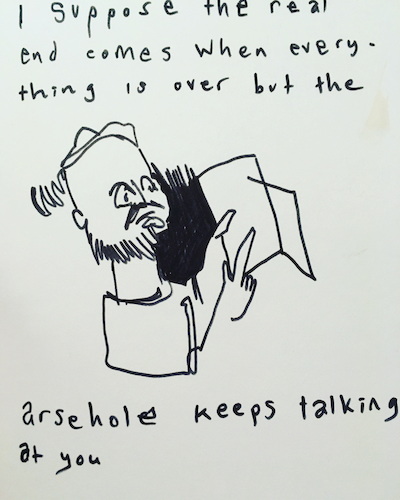 I suppose the real
end comes when every-
thing is over but the
arsehole keeps talking
at you